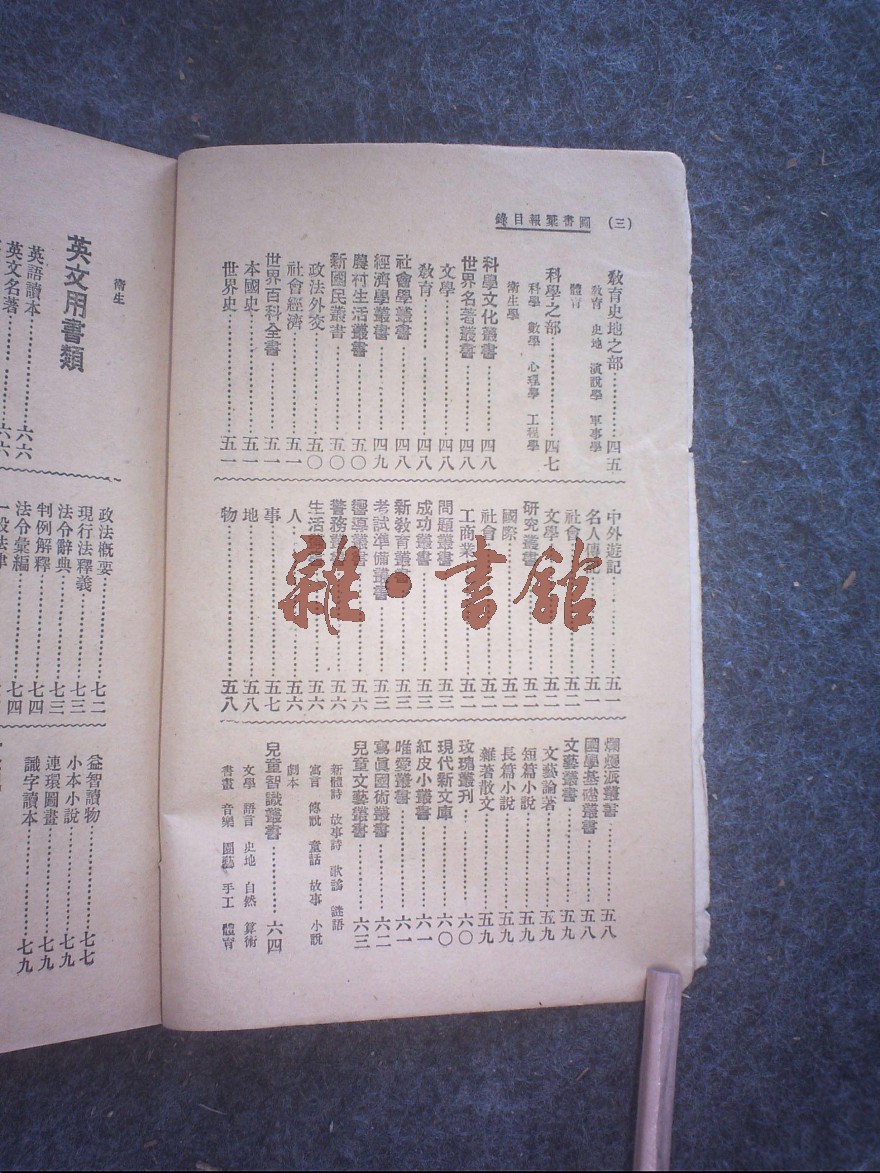 圖書彙報目錄 (三)
教育史地之部……四五
教育 史地 演說學 軍事學
體育
科學之部……四七
科學 數學 心理學 工程學
衛生學
科學文化叢書……四八
世界名著叢書……四八
文學……四八
教育……四八
社會學叢書……四八
經濟學叢書……四九
農村生活叢書……五〇
新國民叢書……五〇
政法外交……五〇
社會經濟……五一
世界百科全書……五一
本國史……五一
世界史……五一
中外遊記……五一
名人傳記……五一
社會……五二
文學……五二
研究叢書……五二
國際……五二
社會……五二
工商業……五二
問題叢書……五三
成功叢書……五三
新教育叢書……五三
考試準備叢書……五三
嚮導叢書……五六
警務叢書……五六
生活叢書……五六
人……五六
事……五七
地……五八
物……五八
爛熳派叢書……五八
國學基礎叢書……五八
文藝叢書……五九
文藝論著……五九
短篇小說……五九
長篇小說……五九
雜著散文……五九
玫瑰叢刊……六〇
現代新文庫……六〇
紅皮小叢書……六一
唯愛叢書……六一
寫真國術叢書……六二
兒童文藝叢書……六三
新體詩 故事詩 歌謠 謎語
寓言 傳說 童話 故事 小說
劇本
兒童智識叢書……六四
文學 語言 史地 自然 算術
書畫 音樂 園藝 手工 體育
雜·書館
衛生
英文用書類
英語讀本……六六
英文名著……六六
政法概要……七二
現行法釋義……七三
法令辭典……七三
判例解釋……七四
法令彙編……七四
一般法律
益智讀物……七七
小本小說……七九
連環圖畫……七九
識字讀本……七九